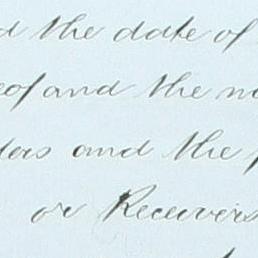 the date of
eof and the
ders and the
or Receivers